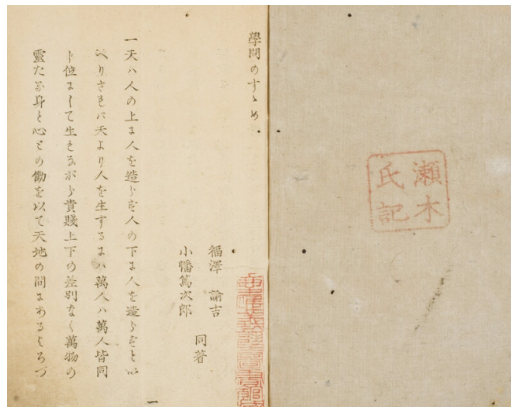 瀬木
氏記
學問のすゝめ
福澤諭吉
小幡篤次郎 同著
慶應義塾圖書館藏
一天ハ人の上に人を造らず人の下に人を造らずとい
へりされバ天より人を生ずるにハ萬人ハ萬人皆同
じ位にして生れながら貴賤上下の差別なく萬物の
靈たる身と心との働を以て天地の間にあるよろづ
一